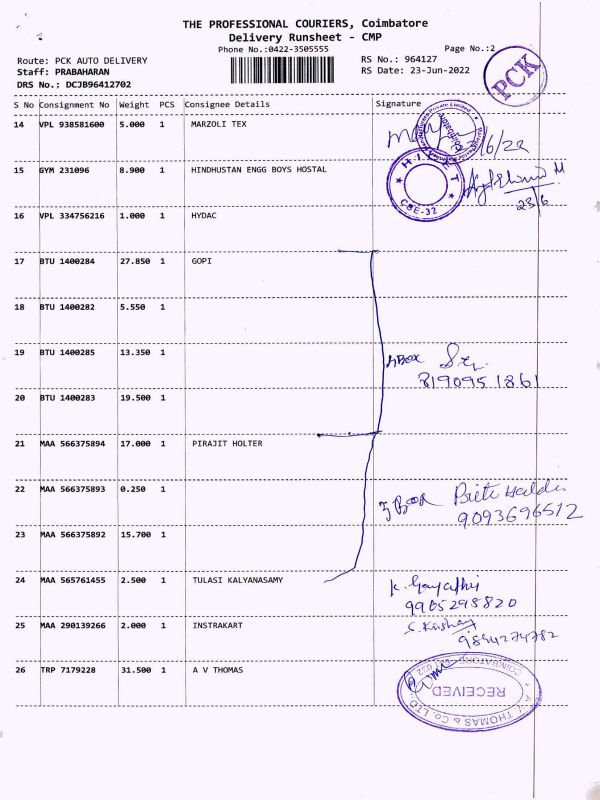 THE PROFESSIONAL COURIERS, Coimbatore
Delivery Runsheet - CMP
Phone No.:0422-3505555
Page No.:2
Route: PCK AUTO DELIVERY
RS No.: 964127
Staff: PRABAHARAN
RS Date: 23-Jun-2022
DRS No.: DCJB96412702
PCK
S No Consignment No Weight PCS Consignee Details Signature
14 VPL 938581600 5.000 1 MARZOLI TEX
15 GYM 231096 8.900 1 HINDUSTAN ENGG BOYS HOSTAL
CBE-32
23/6
16 VPL 334756216 1.000 1 HYDAC
17 BTU 1400284 27.850 1 GOPI
18 BTU 1400282 5.550 1
19 BTU 1400285 13.350 1
4 Box
8190951861
20 BTU 1400283 19.500 1
21 MAA 566375894 17.000 1 PIRAJIT HOLTER
22 MAA 566375893 0.250 1
3 Box
9093696512
23 MAA 566375892 15.700 1
24 MAA 565761455 2.500 1 TULASI KALYANASAMY
K. Gayathri
9905295820
25 MAA 290139266 2.000 1 INSTRAKART
9894274782
26 TRP 7179228 31.500 1 A V THOMAS
RECEIVED